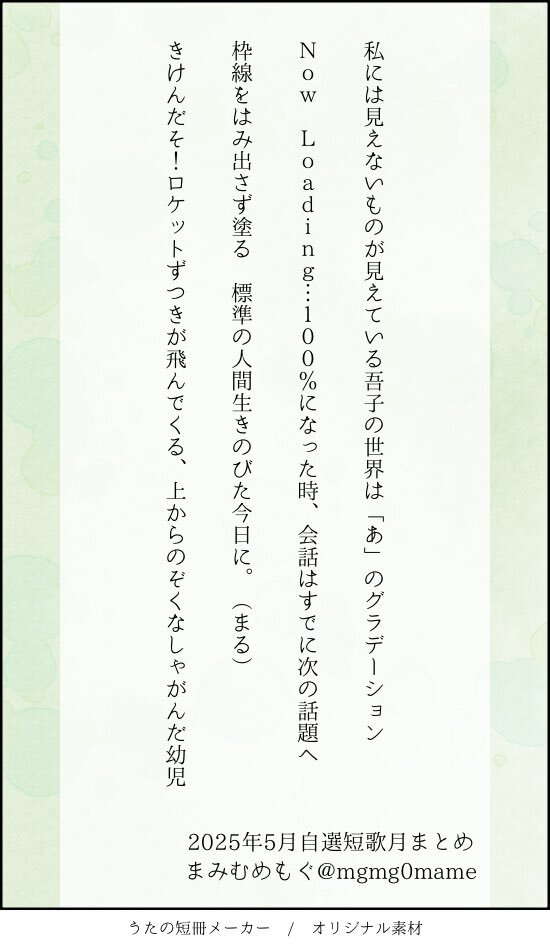 私には見えないものが見えている吾子の世界は「あ」のグラデーション
Now Loading…100%になった時、会話はすでに次の話題へ
枠線をはみ出さず塗る 標準の人間生きのびた今日に。(まる)
きけんだぞ!ロケットずつきが飛んでくる、上からのぞくなしゃがんだ幼児
2025年5月自選短歌月まとめ
まみむめもぐ@mgmg0mame
うたの短冊メーカー / オリジナル素材